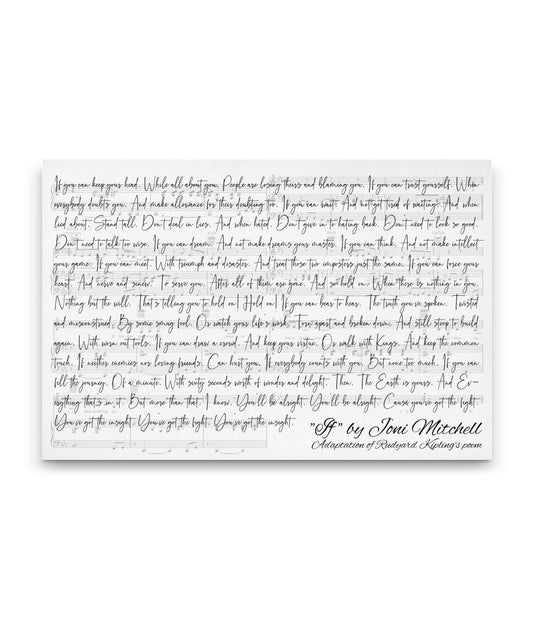 If you can keep your head. While all about you. People are losing theirs and blaming you. If you can trust yourself. When
everybody doubts you. And make allowance for their doubting too. If you can wait. And not get tired of waiting. And when
lied about. Stand tall. Don't deal in lies. And when hated. Don't give in to hating back. Don't need to look so good.
Don't need to talk too wise. If you can dream. And not make dreams your master. If you can think. And not make intellect
your game. If you can meet. With triumph and disaster. And treat those two imposters just the same. If you can force your
heart. And nerve and sinew. To serve you. After all of them are gone. And so hold on. When there is nothing in you.
Nothing but the will. That's telling you to hold on! Hold on! If you can bear to hear. The truth you've spoken. Twisted
and misconstrued. By some smug fool. Or watch your life's work. Torn apart and broken down. And still stoop to build
again. With worn out tools. If you can draw a crowd. And keep your virtue. Or walk with Kings. And keep the common
touch. If neither enemies nor loving friends. Can hurt you. If everybody counts with you. But none too much. If you can
fill the journey. Of a minute. With sixty seconds worth of wonder and delight. Then. The Earth is yours. And Ev-
erything that's in it. But more than that I know. You'll be alright. You'll be alright. Cause you've got the fight.
You've got the insight. You've got the fight. You've got the insight.
"If" by Joni Mitchell
Adaptation of Rudyard Kipling's poem